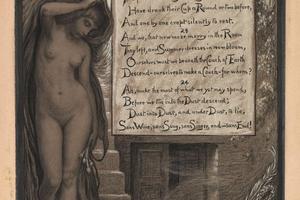 Have drunk their Cup a Round or two before,
And one by one crept silently to rest.
23
And we, that now make merry in the Room
They left, and Summer dresses in new bloom,
Ourselves must we beneath the Couch of Earth
Descend—ourselves to make a Couch—for whom?
24
Ah, make the most of what we yet may spend,
Before we too into the Dust descend;
Dust into Dust, and under Dust, to lie,
Sans Wine, sans Song, sans Singer, and—sans End!